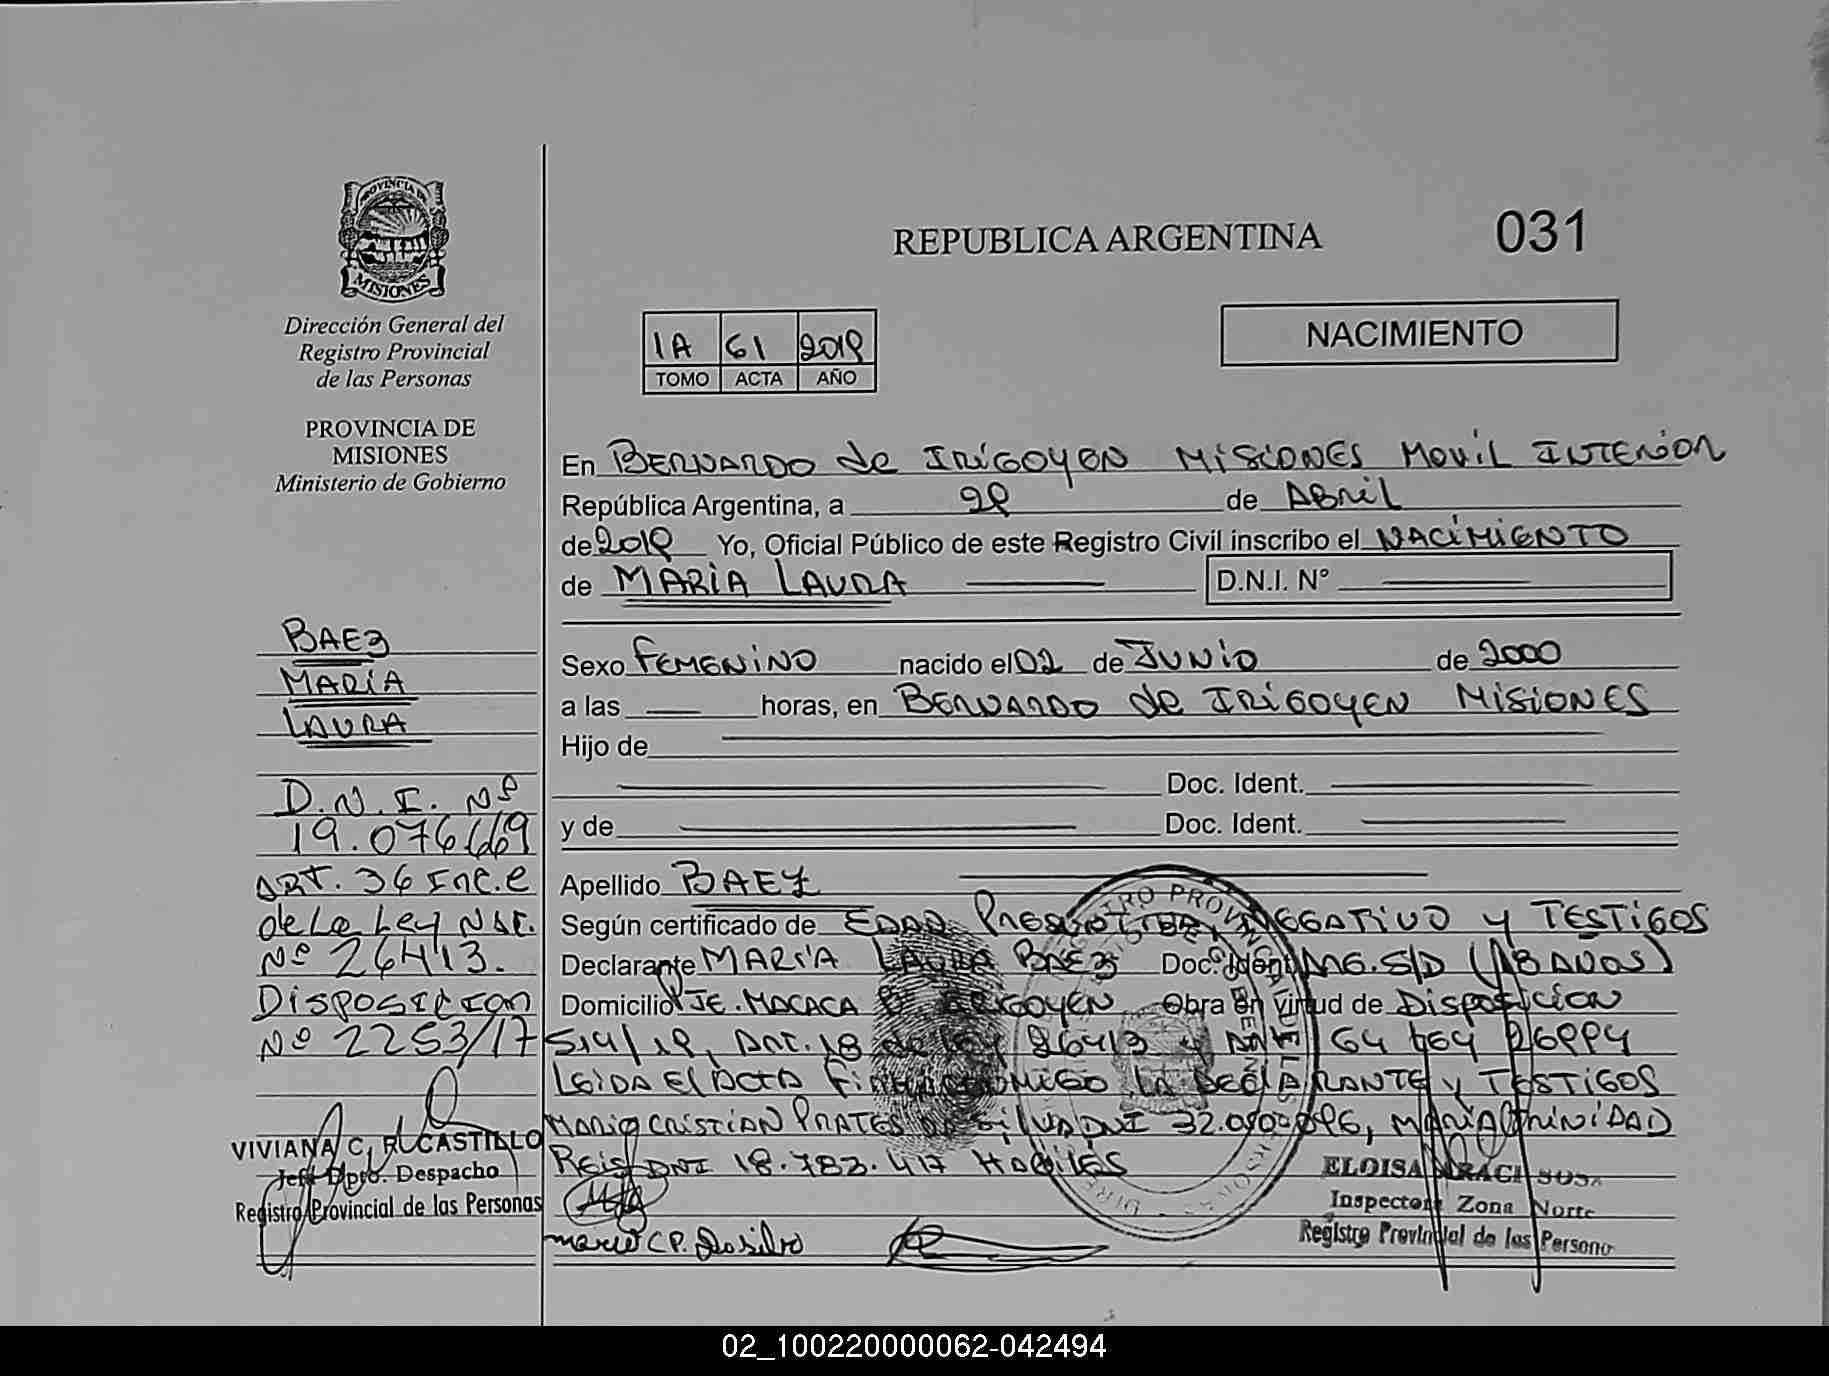 PROVINCIA DE
MISIONES
Dirección General del
Registro Provincial
de las Personas
PROVINCIA DE
MISIONES
Ministerio de Gobierno
BAEZ
MARIA
LAURA
D.N.I. Nº
19.076669
ART. 36 INC.e
de La Ley NAC.
Nº 26413.
DISPOSICION
Nº 2253/17
VIVIANA C. R. CASTILLO
Jefe Dpto. Despacho
Registro Provincial de las Personas
REPUBLICA ARGENTINA
031
1A 61 2019
TOMO ACTA AÑO
NACIMIENTO
En BERNARDO de IRIGOYEN MISIONES MOVIL INTERIOR
República Argentina, a 29 de ABRIL
de 2019 Yo, Oficial Público de este Registro Civil inscribo el NACIMIENTO
de MARIA LAURA D.N.I. N°
Sexo FEMENINO nacido el 02 de JUNIO de 2000
a las horas, en BERNARDO de IRIGOYEN MISIONES
Hijo de
Doc. Ident.
y de Doc. Ident.
Apellido BAEZ
Según certificado de EDAD PRESUNTIVA, NEGATIVO y TESTIGOS
Declarante MARIA LAURA BAEZ Doc. Ident. ARG. S/D (18 AÑOS)
Domicilio PJE. MACACA B. IRIGOYEN Obra en virtud de DISPOSICION
514/19, ART. 18 de Ley 26413 y ART 64 Ley 26994
LEIDA El ACTA FIRMAN CONMIGO LA DECLARANTE y TESTIGOS
MARIO CRISTIAN PRATES DA SILVA DNI MARIA TRINIDAD
REIS DNI 18.783.417 HABILES
mario C P. Da silva
ELOISA GRACI SOSA
Inspectora Zona Norte
Registro Provincial de las Persona
02_100220000062-042494